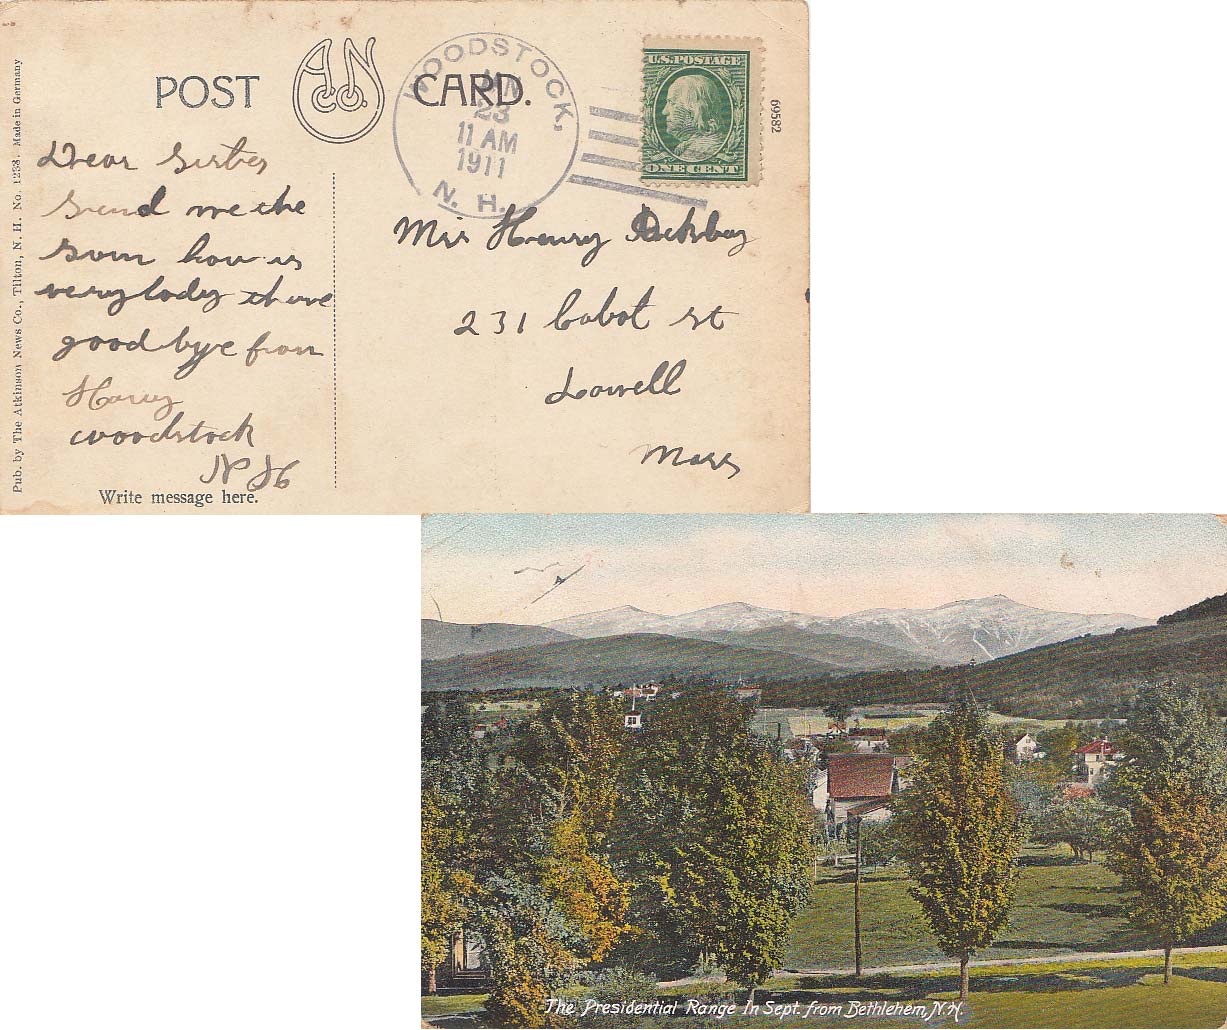 POST CARD.
A N Co.
WOODSTOCK,
JAN
23
11 AM
1911
N. H.
U.S. POSTAGE
ONE CENT
69582
Pub. by The Atkinson News Co., Tilton, N. H. No. 1238. Made in Germany
Dear Sister
Send me the
how is
there
good bye from
Harry
woodstock
N H
Write message here.
Mrs Henry
231 Cabot st
Lowell
Mass
The Presidential Range In Sept. from Bethlehem, N.H.